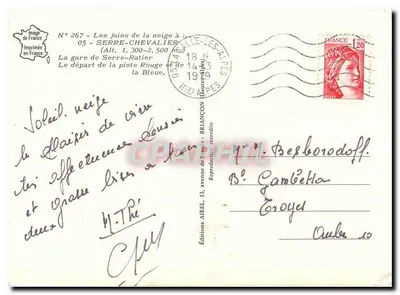 Image
de France
Imprimée
en France
N° 267 - Les joies de la neige à
05 - SERRE-CHEVALIER
(Alt. 1, 300-2, 500 m)
La gare de Serre-Ratier
Le départ de la piste Rouge et de
la Bleue.
LES-ALPES
18 H
14-3
1979
Htes ALPES
1,20
Soleil, neige
le plaisir de vivre
très affectueuses pensées
et grosses bises à tous
deux
M. Thé
Editions AIREL, 13, avenue de BRIANÇON
Reproduction interdite
Besborodoff
Bd Gambetta
Troyes
Aube 10